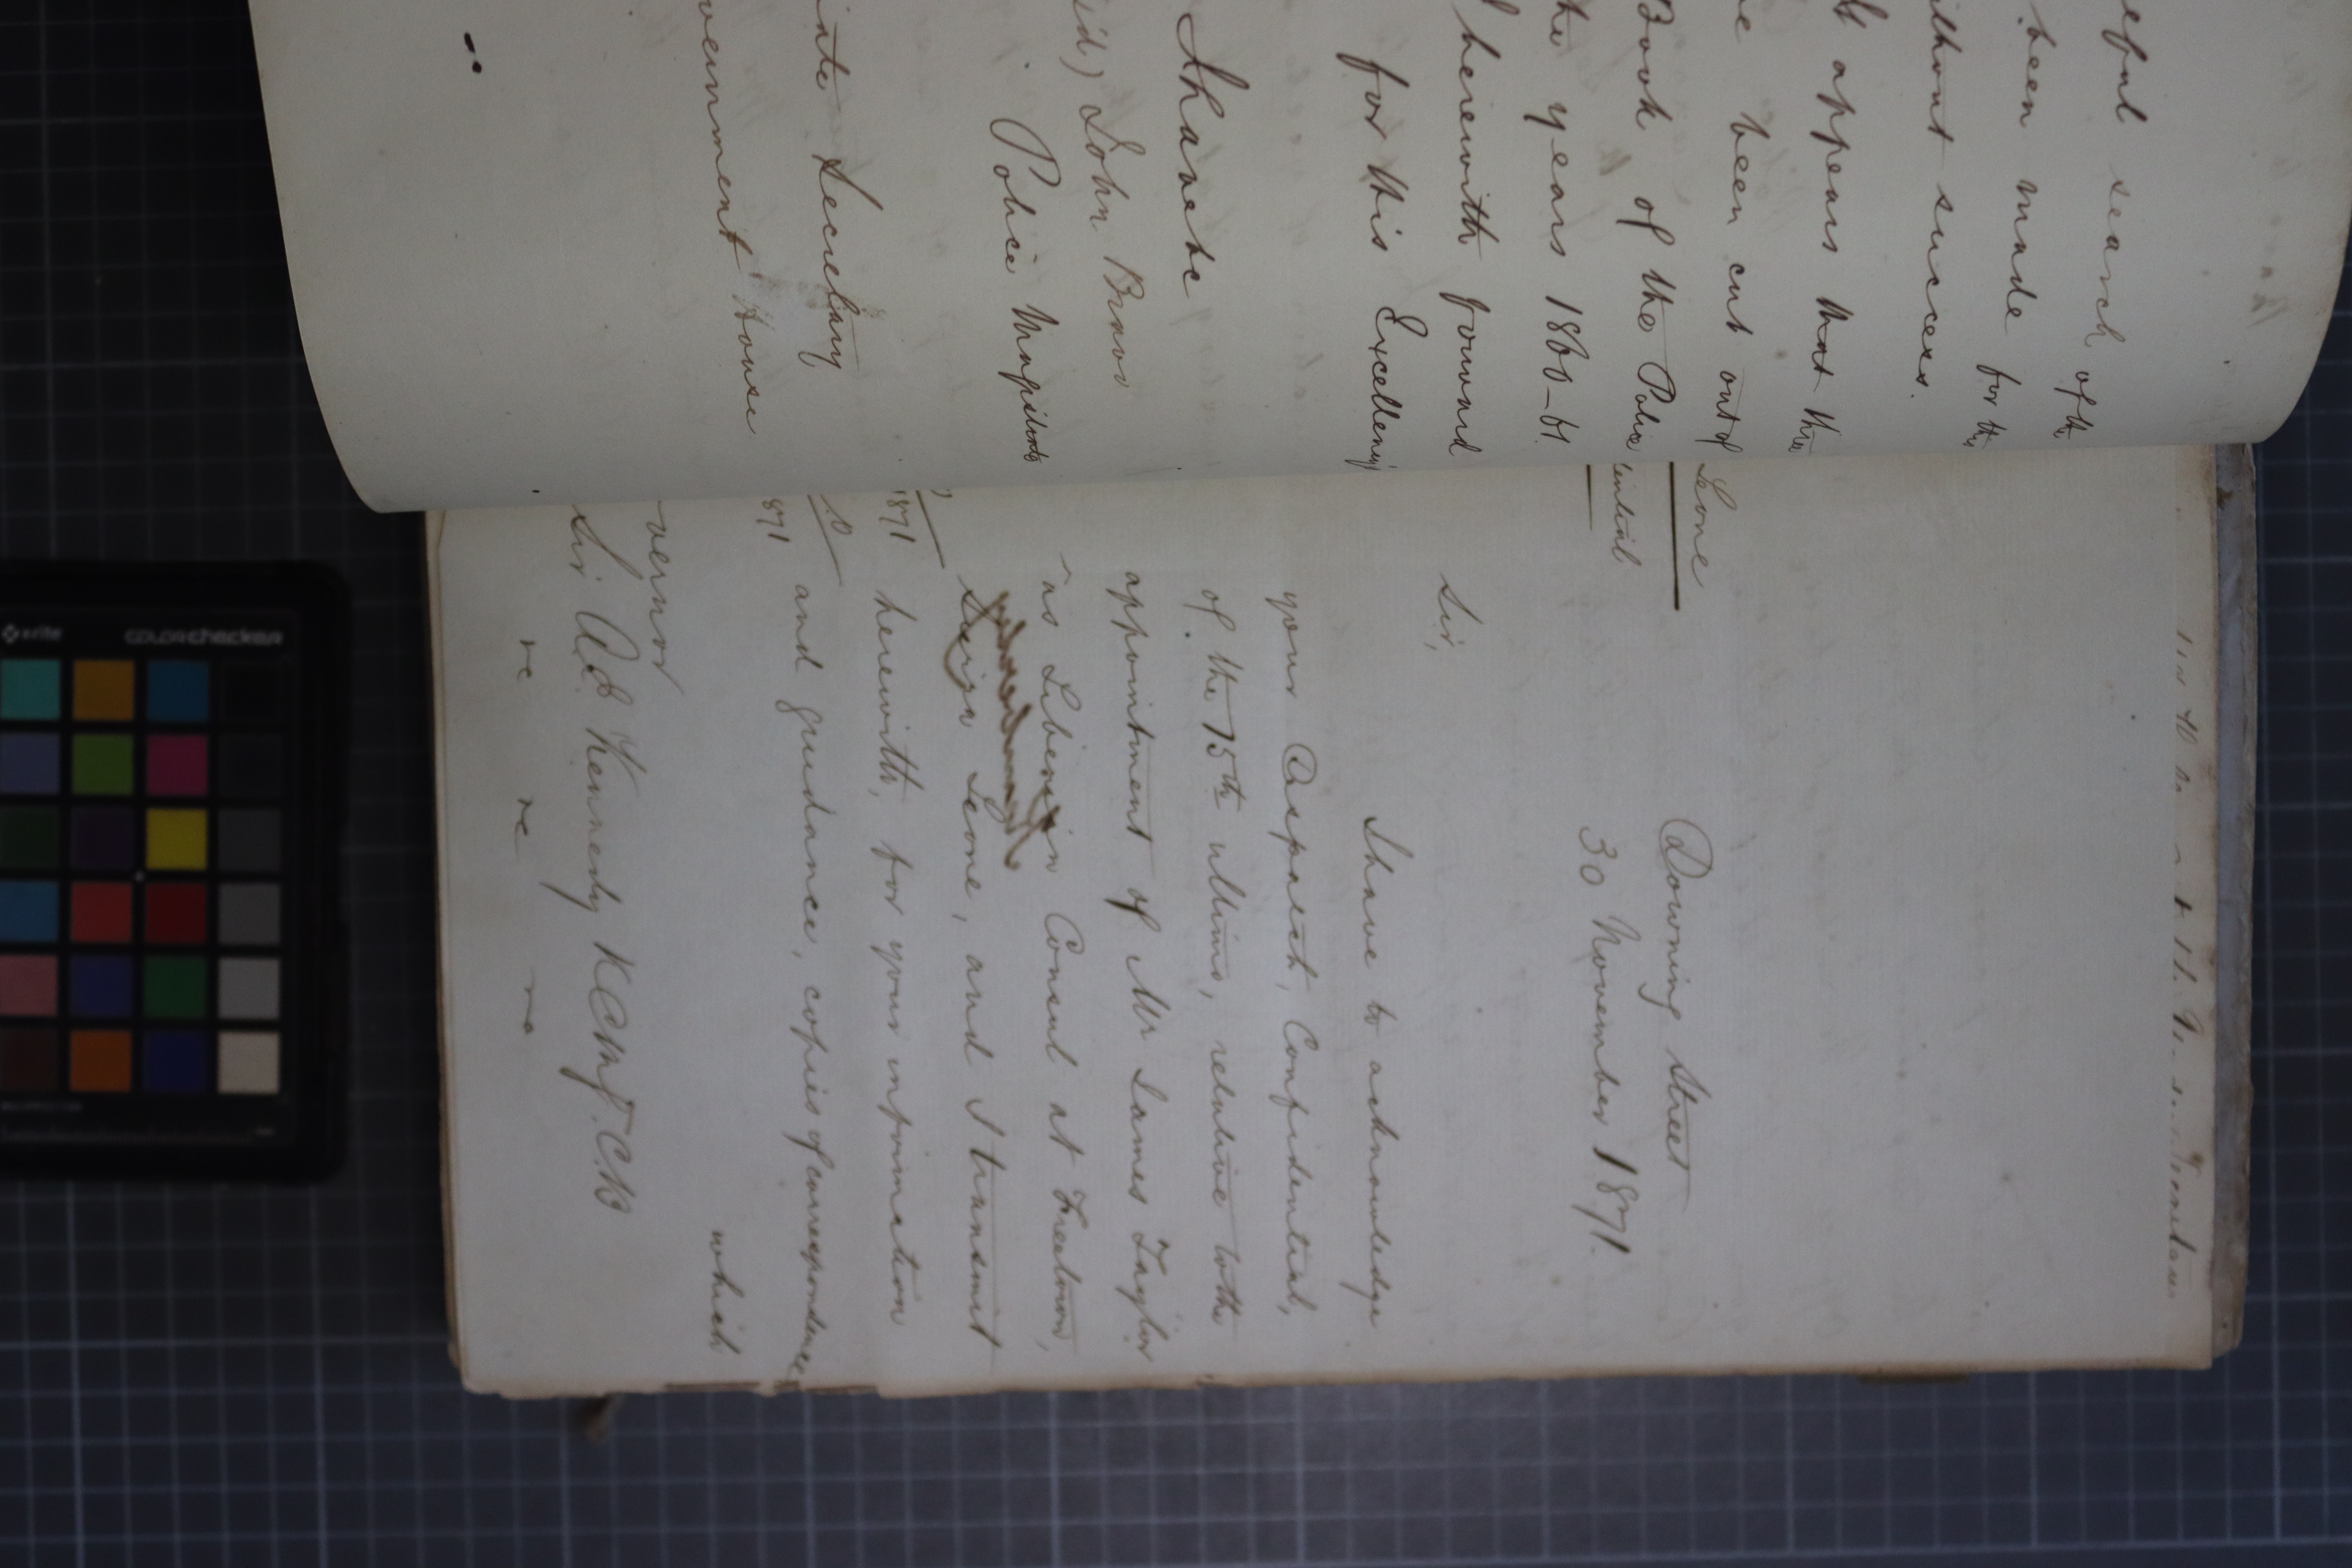 search of the
been made for the
without success.
appears that the
been cut out of
Book of the Police
the years 1860-61
herewith forward
for His Excellency
I have &c
John Bravo
Police Magistrate
Secretary
House
Leone
Downing Street
30 November 1871.
Sir,
I have to acknowledge
your Despatch, Confidential,
of the 15th ultimo, relative to the
appointment of Mr James Taylor
^as Liberian Consul at Freetown,
Sierra Leone, and I transmit
1871 herewith, for your information
and guidance, copies of correspondence
1871
which
Sir A E Kennedy KCMG. CB
&c &c &c